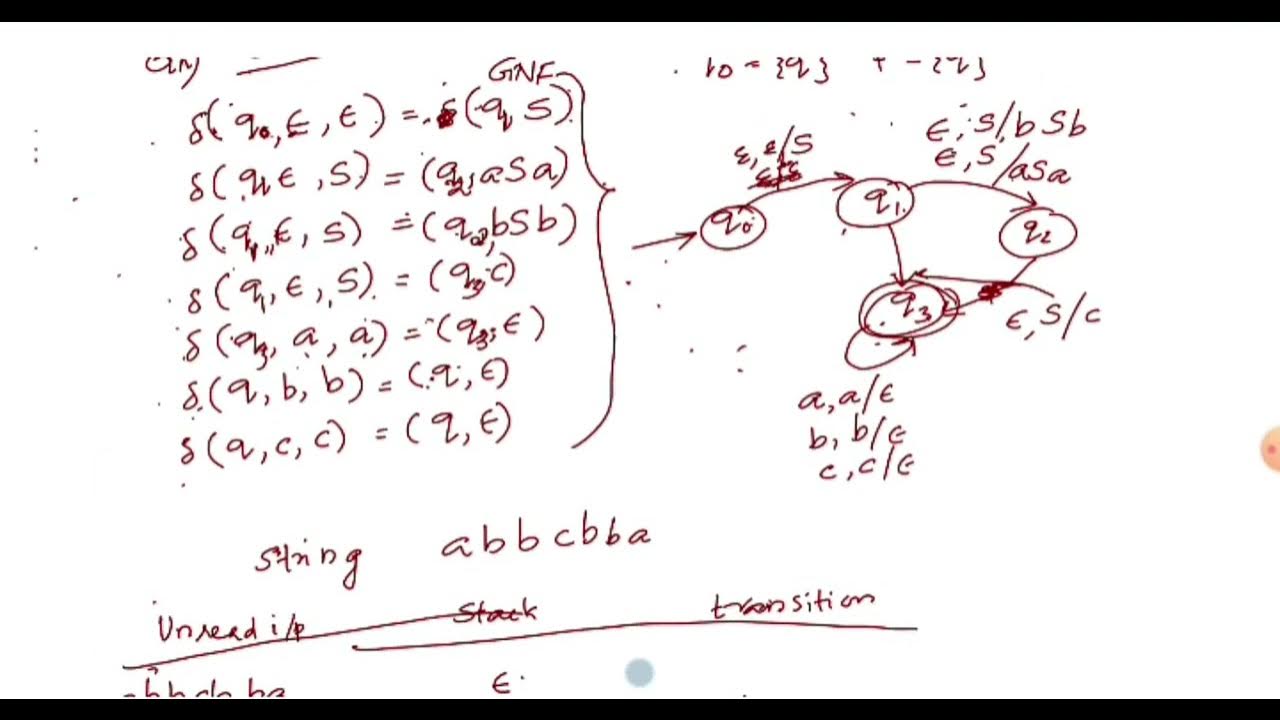 GNF
δ(q₀, ε, ε) = (q₁ S)
δ(q₁, ε, S) = (q₂, aSa)
δ(q₁, ε, S) = (q₂, bSb)
δ(q₁, ε, S) = (q₃, c)
δ(q₃, a, a) = (q₃, ε)
δ(q, b, b) = (q, ε)
δ(q, c, c) = (q, ε)
ε, ε/S
ε, S/bSb
ε, S/aSa
q₀
q₁
q₂
q₃
ε, S/c
a, a/ε
b, b/ε
c, c/ε
string abbcbba
Unread i/p Stack transition
ε